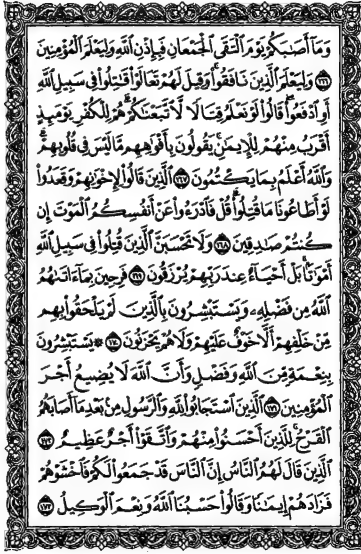 وَمَآ أَصَٰبَكُمْ يَوْمَ ٱلْتَقَى ٱلْجَمْعَانِ فَبِإِذْنِ ٱللَّهِ وَلِيَعْلَمَ ٱلْمُؤْمِنِينَ
١٦٦ وَلِيَعْلَمَ ٱلَّذِينَ نَافَقُوا۟ ۚ وَقِيلَ لَهُمْ تَعَالَوْا۟ قَٰتِلُوا۟ فِى سَبِيلِ ٱللَّهِ
أَوِ ٱدْفَعُوا۟ ۖ قَالُوا۟ لَوْ نَعْلَمُ قِتَالًا لَّٱتَّبَعْنَٰكُمْ ۗ هُمْ لِلْكُفْرِ يَوْمَئِذٍ
أَقْرَبُ مِنْهُمْ لِلْإِيمَٰنِ ۚ يَقُولُونَ بِأَفْوَٰهِهِم مَّا لَيْسَ فِى قُلُوبِهِمْ ۗ
وَٱللَّهُ أَعْلَمُ بِمَا يَكْتُمُونَ ١٦٧ ٱلَّذِينَ قَالُوا۟ لِإِخْوَٰنِهِمْ وَقَعَدُوا۟
لَوْ أَطَاعُونَا مَا قُتِلُوا۟ ۗ قُلْ فَٱدْرَءُوا۟ عَنْ أَنفُسِكُمُ ٱلْمَوْتَ إِن
كُنتُمْ صَٰدِقِينَ ١٦٨ وَلَا تَحْسَبَنَّ ٱلَّذِينَ قُتِلُوا۟ فِى سَبِيلِ ٱللَّهِ
أَمْوَٰتًۢا ۚ بَلْ أَحْيَآءٌ عِندَ رَبِّهِمْ يُرْزَقُونَ ١٦٩ فَرِحِينَ بِمَآ ءَاتَىٰهُمُ
ٱللَّهُ مِن فَضْلِهِۦ وَيَسْتَبْشِرُونَ بِٱلَّذِينَ لَمْ يَلْحَقُوا۟ بِهِم
مِّنْ خَلْفِهِمْ أَلَّا خَوْفٌ عَلَيْهِمْ وَلَا هُمْ يَحْزَنُونَ ١٧٠ ۞ يَسْتَبْشِرُونَ
بِنِعْمَةٍ مِّنَ ٱللَّهِ وَفَضْلٍ وَأَنَّ ٱللَّهَ لَا يُضِيعُ أَجْرَ
ٱلْمُؤْمِنِينَ ١٧١ ٱلَّذِينَ ٱسْتَجَابُوا۟ لِلَّهِ وَٱلرَّسُولِ مِنۢ بَعْدِ مَآ أَصَابَهُمُ
ٱلْقَرْحُ ۚ لِلَّذِينَ أَحْسَنُوا۟ مِنْهُمْ وَٱتَّقَوْا۟ أَجْرٌ عَظِيمٌ ١٧٢
ٱلَّذِينَ قَالَ لَهُمُ ٱلنَّاسُ إِنَّ ٱلنَّاسَ قَدْ جَمَعُوا۟ لَكُمْ فَٱخْشَوْهُمْ
فَزَادَهُمْ إِيمَٰنًا وَقَالُوا۟ حَسْبُنَا ٱللَّهُ وَنِعْمَ ٱلْوَكِيلُ ١٧٣